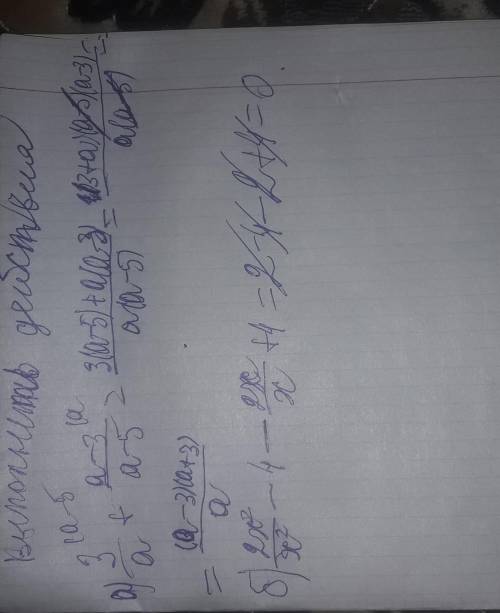 выполнить действия
а) 3/a + a-3/a-5 = 3(a-5)+a(a-3)/a(a-5) = (3+a)(a-5)(a-3)/a(a-5) =
= (a-3)(a+3)/a
б) 2x²/x² - 4 - 2x/x + 4 = 2-4-2+4=0